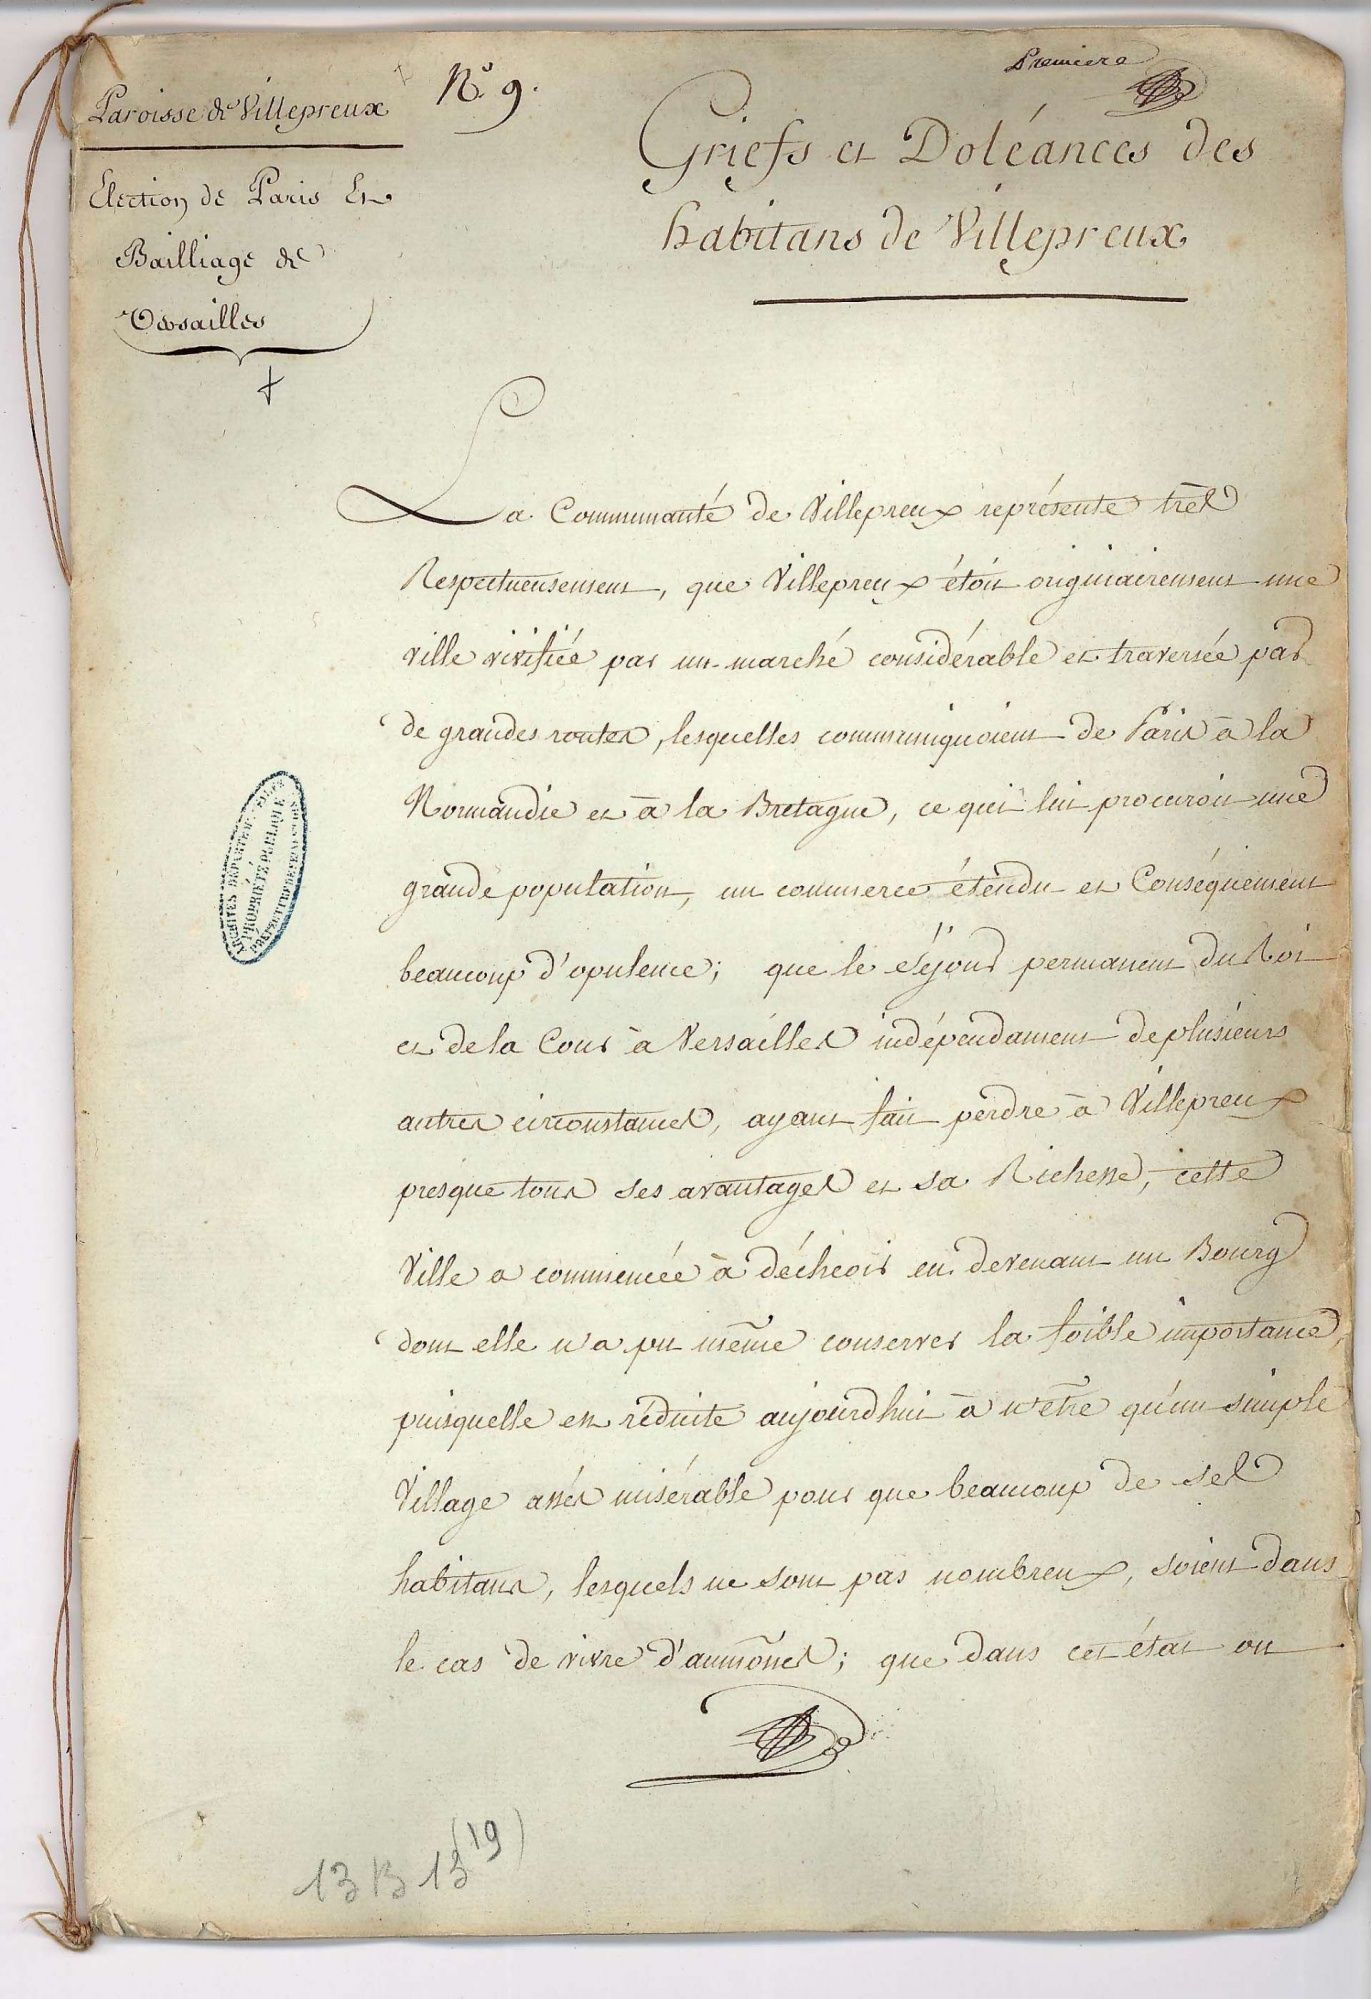 Premiere
Paroisse de Villepreux
N.° 9.
Election de Paris Et
Bailliage de
Versailles
Griefs et Doléances des
habitans de Villepreux
La Communauté de Villepreux représente très
Respectueusement, que Villepreux étoit originairement une
ville vivifiée par un marché considérable et traversée par
de grandes routes, lesquelles communiquoient de Paris à la
Normandie et à la Bretagne, ce qui lui procuroit une
grande population, un commerce étendu et Conséquement
beaucoup d'opulence; que le séjour permanent du Roi
et de la Cour à Versailles indépendament de plusieurs
autres circonstances, ayant fait perdre à Villepreux
presque tous ses avantages et sa Richesse, cette
Ville a commencée à décheoir en devenant un Bourg
dont elle n'a pu même conserver la foible importance,
puisquelle est réduite aujourdhui à n'etre qu'un simple
Village assés misérable pour que beaucoup de ses
habitans, lesquels ne sont pas nombreux, soient dans
le cas de vivre d'aumônes; que dans cet état on
ARCHITES DÉPARTEM
PROPRIÉTÉ PUBLIQUE
PRÉFECTURE DE
13 B 13 (19)